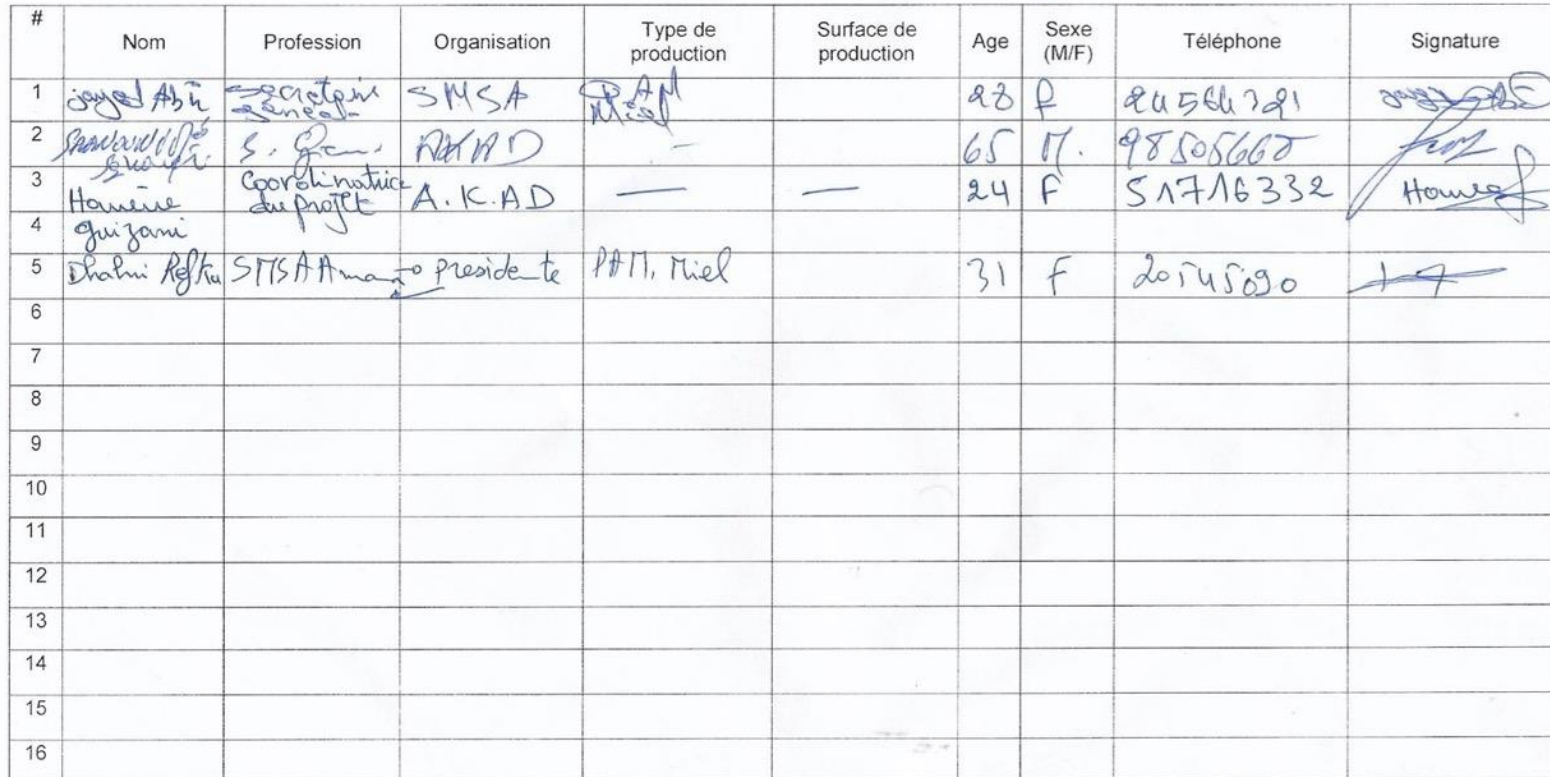 # Nom Profession Organisation Type de production Surface de production Age Sexe (M/F) Téléphone Signature
1 jayed secrétaire général SMSA PAM Miel 28 f
2 AKAD - 65 M. 98505660
3 Hamène Guizani Coordinatrice du projet A.K.AD — — 24 F 51716332
4
5 Dhahri Refka SMSA Aman presidente PAM, Miel 31 F 20545090
6
7
8
9
10
11
12
13
14
15
16